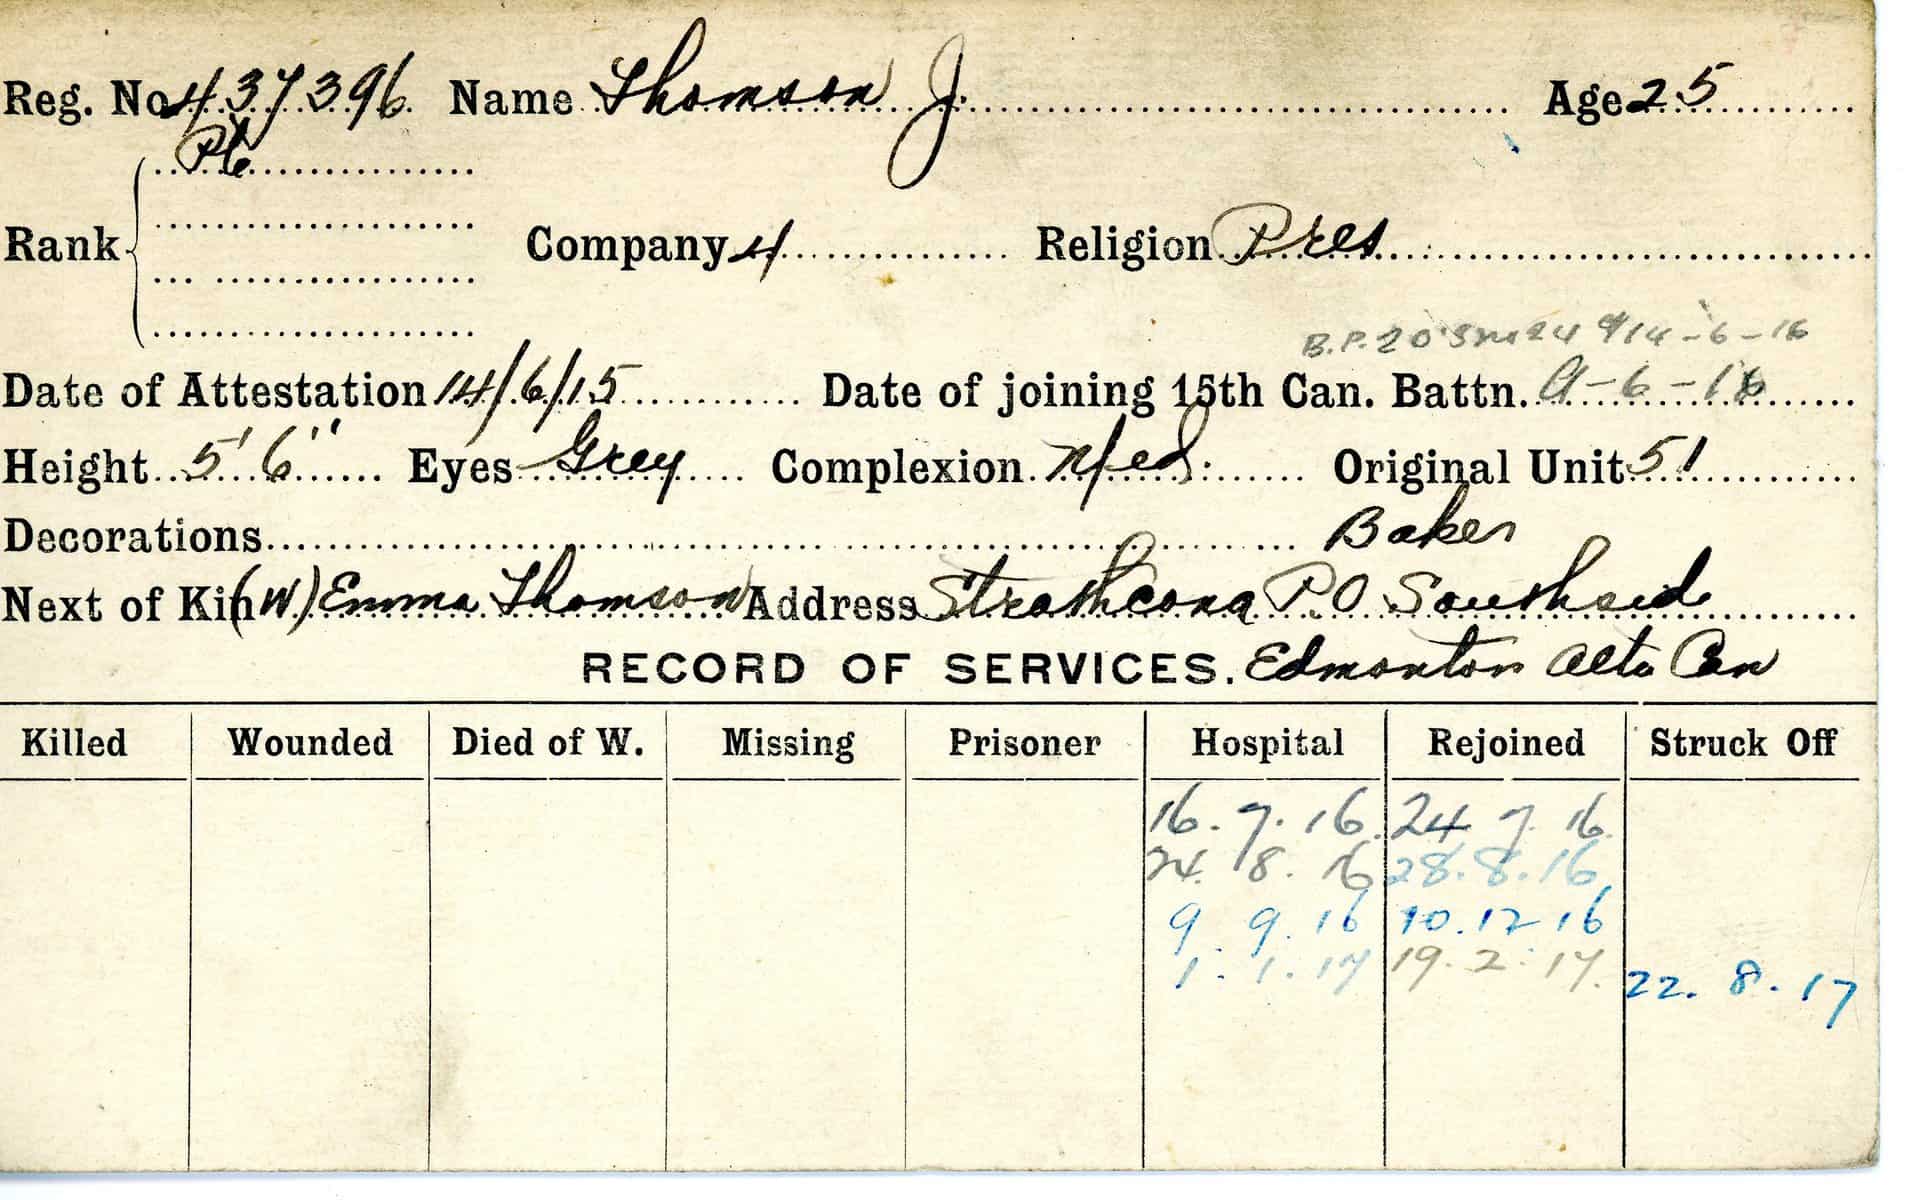 Reg. No. 437396 Name Thomson J. Age 25
Pte
Rank Company 4 Religion Pres
B.P. 20 14-6-16
Date of Attestation 14/6/15 Date of joining 15th Can. Battn. 9-6-16
Height 5' 6'' Eyes Grey Complexion Med. Original Unit 51
Decorations Baker
Next of Kin (W.) Emma Thomson Address Strathcona P.O Southside
RECORD OF SERVICES. Edmonton Alta Can
Killed Wounded Died of W. Missing Prisoner Hospital Rejoined Struck Off
16. 7. 16. 24 7 16.
24. 8. 16 28. 8. 16
9 9. 16 10. 12 16
1. 1. 17 19. 2. 17.
22. 8. 17